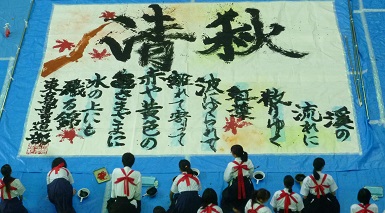 秋清
渓の
流れに
散りゆく
紅葉
波にゆられて
離れて寄って
赤や黄色の
色さまざまに
水の上にも
織る錦